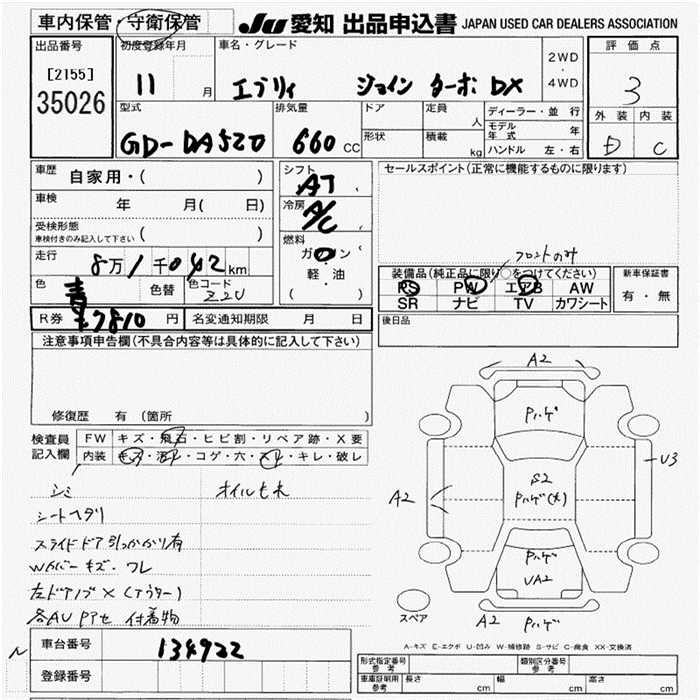 車内保管・守衛保管
JU 愛知 出品申込書 JAPAN USED CAR DEALERS ASSOCIATION
出品番号 初度登録年月 車名・グレード 2WD・4WD 評価点
[2155]
35026
11 月 エブリィ ジョイン ターボ DX
3
型式 排気量 ドア 定員 人 ディーラー・並行 外装 内装
GD-DA52V 660 CC 形状 積載 kg モデル年式 年
ハンドル 左・右
D C
車歴 自家用・( )
シフト AT
セールスポイント(正常に機能するものに限ります)
車検 年 月( 日)
冷房 A/C
受検形態
車検付きのみ記入して下さい ( )
燃料 ガソリン・軽・油 ( )
走行 8万1千042km
フロントのみ
色 青 色替 色コード Z2U
装備品(純正品に限り○をつけてください) 新車保証書
PS PW エアB AW 有・無
SR ナビ TV カワシート
R券 ¥7810 円 名変通知期限 月 日
後日品
注意事項申告欄(不具合内容等は具体的に記入して下さい)
修復歴 有 (箇所 )
検査員記入欄 FW キズ・飛石・ヒビ割・リペア跡・X要
内装 キズ・汚れ・コゲ・穴・スレ・キレ・破レ
シミ オイルモレ
シートヘタリ
スライドドア引っかかり有
Wカバーキズ・ワレ
左ドアノブ×(アウター)
各AUPアセ 付着物
A2
Pハゲ
U3
S2
Pハゲ(大)
A2
Pハゲ
UA2
スペア
A2 Pハゲ
A-キズ E-エクボ U-凹み W-補修跡 S-サビ C-腐食 XX-交換済
車台番号 134922
登録番号
形式指定番号 参考 類別区分番号 参考
車庫証明用 参考 長さ cm 幅 cm 高さ cm